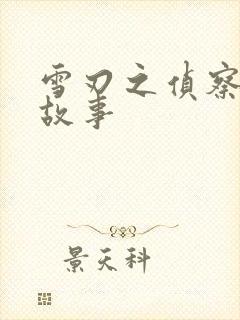 雪刃之偵察
故事
景天科